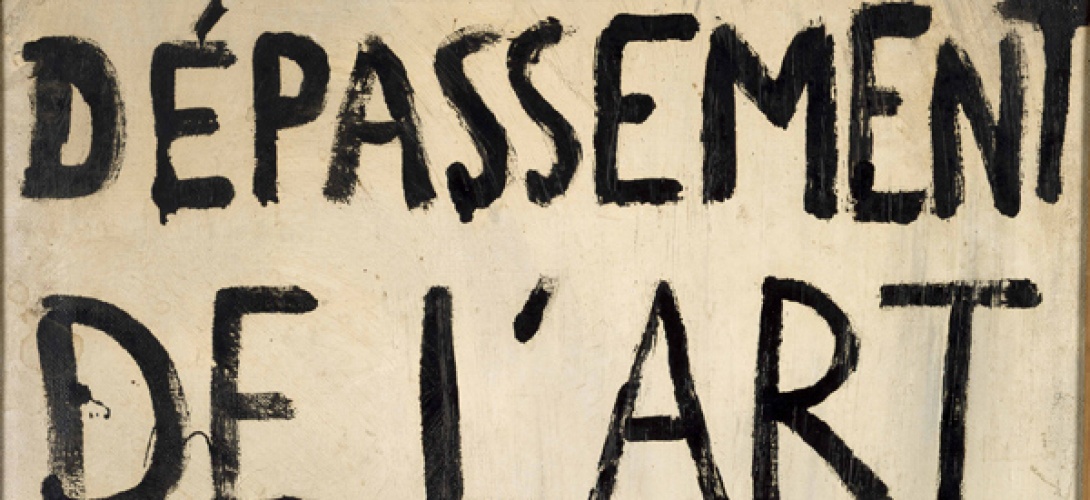 DÉPASSEMENT
DE L'ART